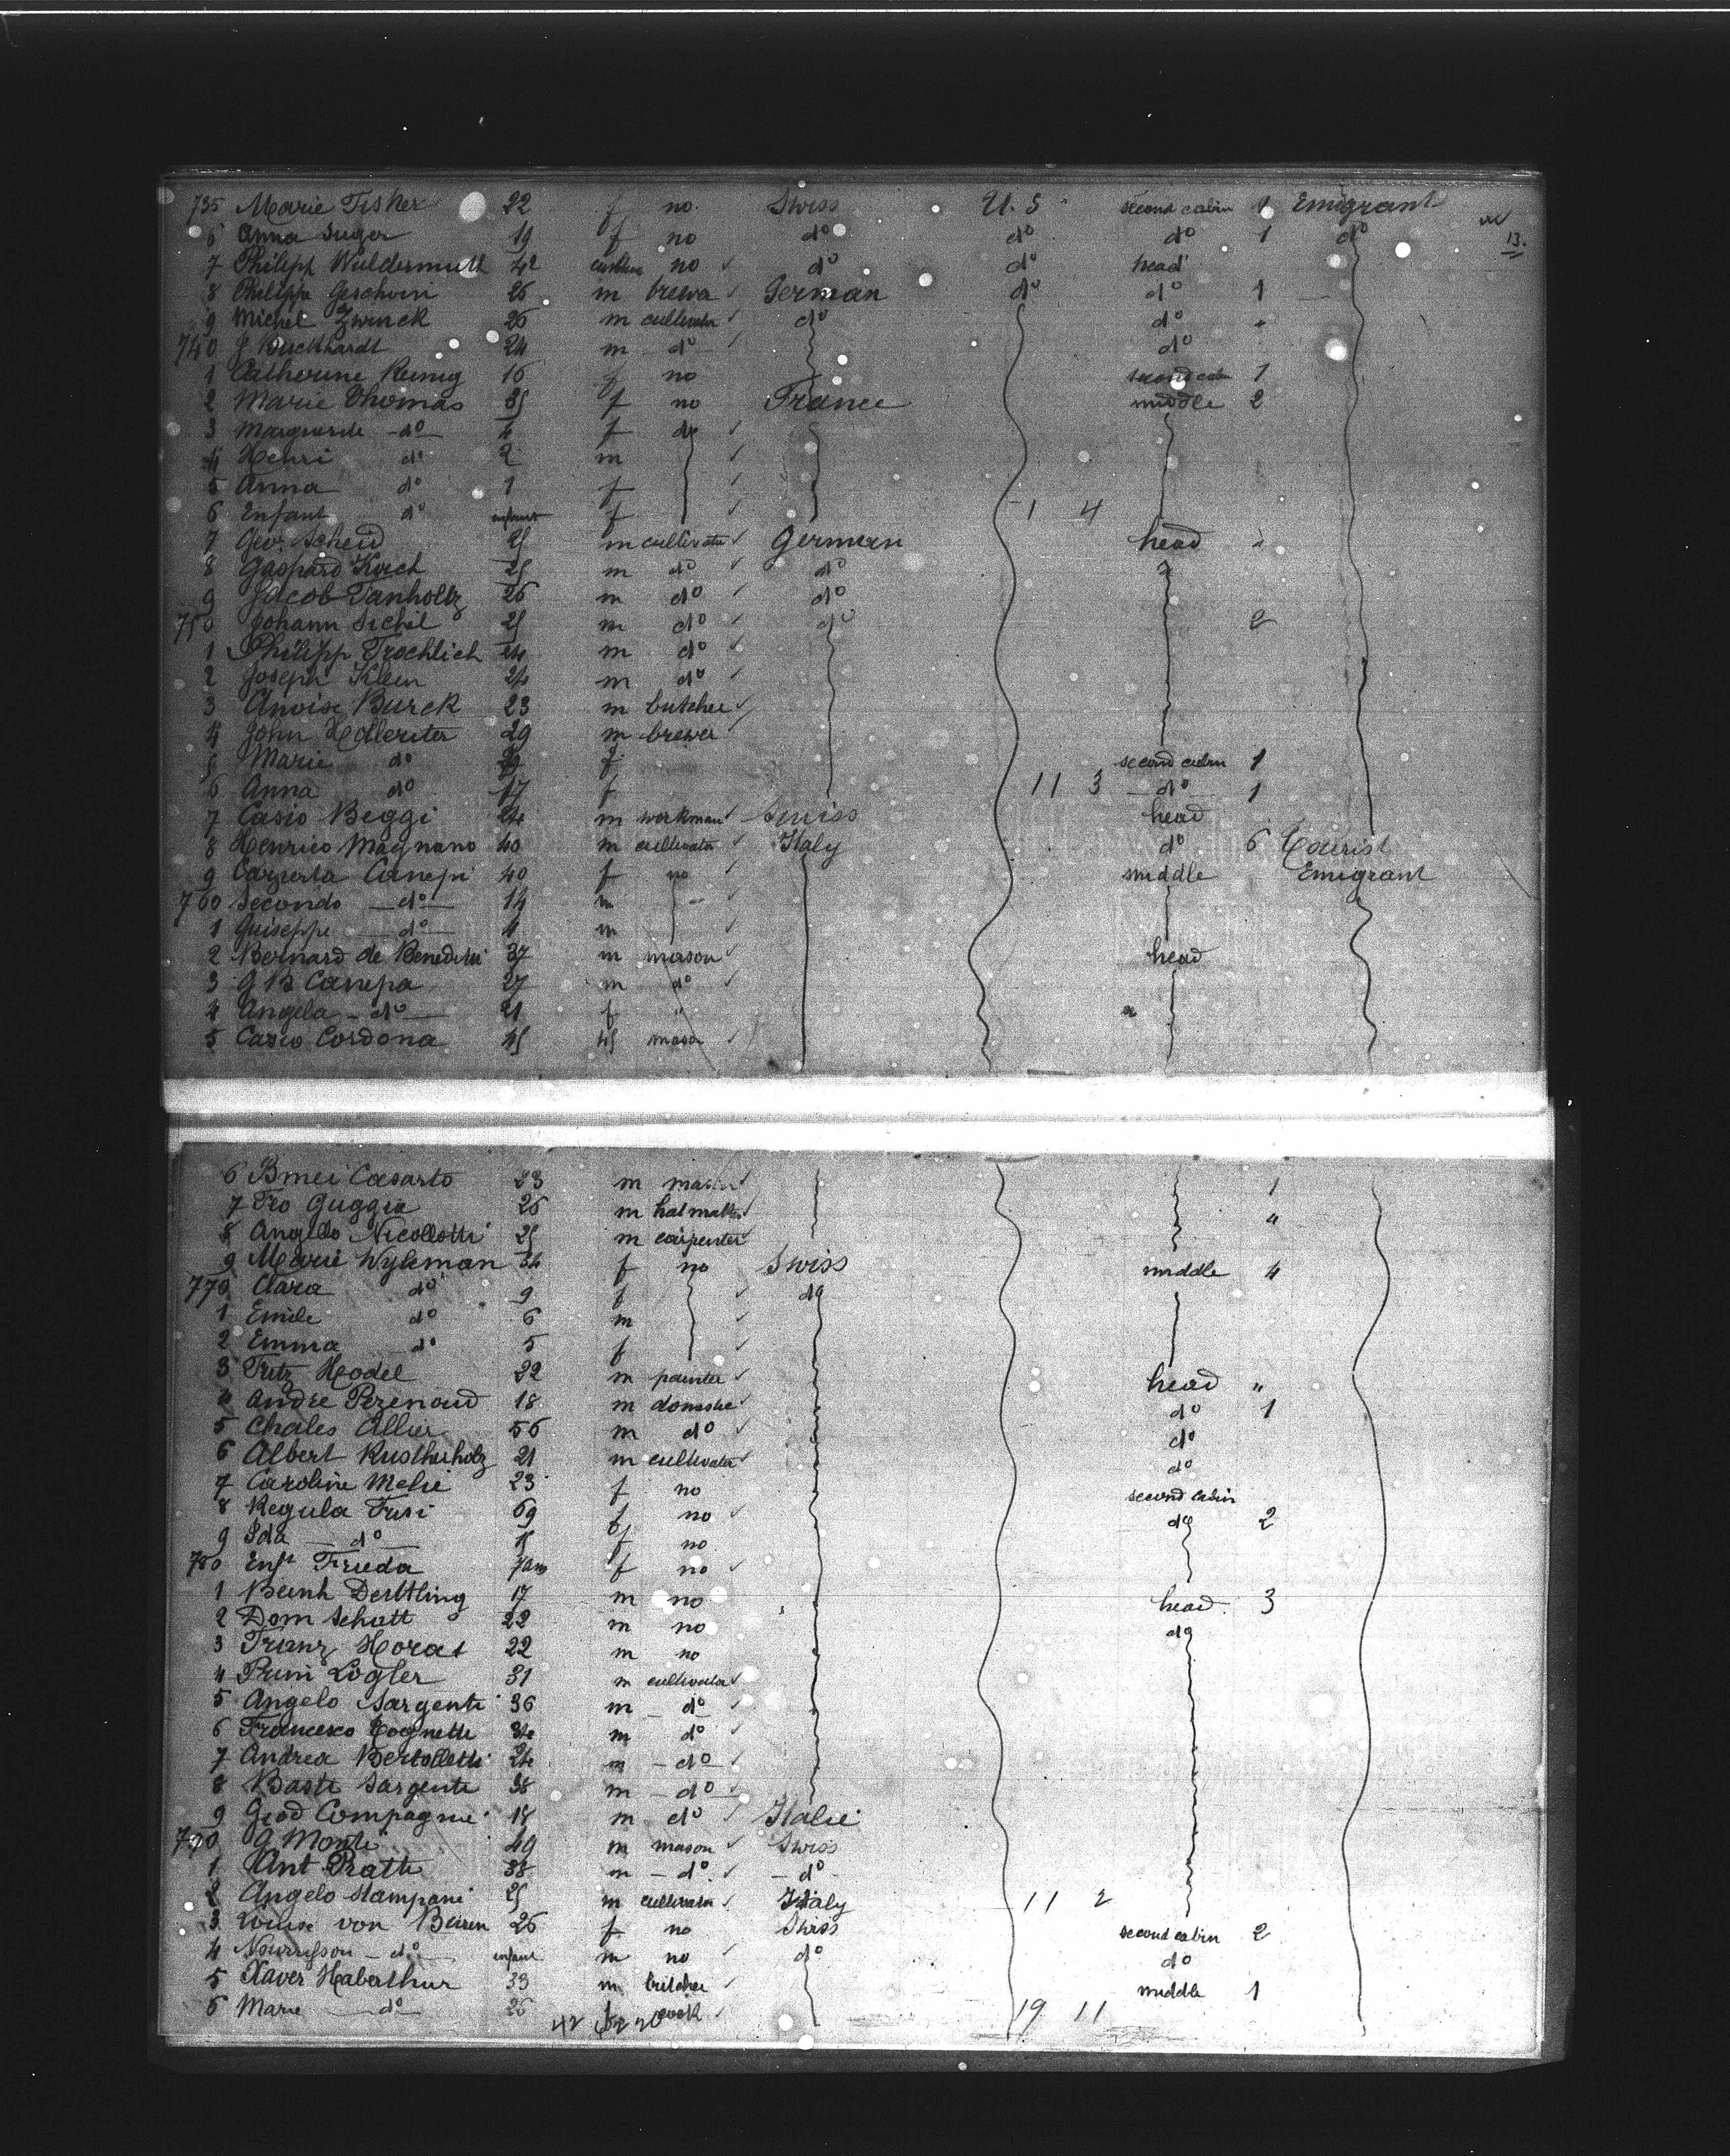 735 Marie Fisher 22 f no Swiss U.S second cabin 1 Emigrant
13.
6 Anna Suger 19 f no do do do 1 do
7 Philipp Wuldermuth 42 no do do head
8 Philippe Geschwin 26 m brewer German do do 1
9 Michel Zwinck 26 m cultivator do do
740 J Burckhardt 24 m do do
1 Catherine Kenig 16 f no second cabin 1
2 Marie Thomas 35 f no France middle 2
3 Marguerite do 4 f do
4 Henri do 2 m
5 Anna do 1 f
6 Enfant do infant f 1 4
7 Geo. Scheid 25 m cultivator German head
8 Gaspard Koch 25 m do do
9 Jacob Tanholtz 26 m do do
750 Johann Sichel 25 m do do 2
1 Philipp Froehlich 24 m do
2 Joseph Klein 24 m do
3 Anoise Burck 23 m butcher
4 John Edleriter 29 m brewer
5 Marie do f second cabin 1
6 Anna do 17 f 11 3 do 1
7 Casio Beggi 24 m workman Swiss head
8 Henrico Magnano 40 m cultivator Italy do 6 Tourist
9 Canepi 40 f no middle Emigrant
760 Secondo do 14 m
1 Guiseppe do 4 m
2 Bernard de Benedetti 37 m mason head
3 G B Canepa 27 m do
4 Angela do 21 f "
5 Casio Cordona 45 45 mason
6 Bmei Casarto 23 m mason 1
7 Fro Guggia 26 m hatmaker "
8 Angelo Nicollotti 25 m carpenter
9 Marie Wyleman 34 f no Swiss middle 4
770 Clara do 9 f do
1 Emile do 6 m
2 Emma do 5 f
3 Fritz Hodel 22 m painter head "
4 Andre Perenoud 18 m domestic do 1
5 Chales Allier 56 m do do
6 Albert Rusthuholz 21 m cultivator do
7 Caroline Melie 23 f no second cabin
8 Regula Fusi 69 f no do 2
9 Ida do f no
780 Enft Frieda f no
1 Bernh Derttling 17 m no head 3
2 Dom Schatt 22 m no do
3 Franz Horat 22 m no
4 Prim Logler 31 m cultivator
5 Angelo Sargenti 36 m do
6 Francesco Tognetti 34 m do
7 Andrea Bertolletti 24 m do
8 Basti Sargenti 38 m do
9 Giod Compagni 18 m do Italie
790 G Monti 49 m mason Swiss
1 Ant Pratti 38 m do do
2 Angelo Stampani 25 m cultivator Italy 11 2
3 Louise von Büren 26 f no Swiss second cabin 2
4 Nourrisson do infant m no do do
5 Xaver Haberthur 33 m butcher middle 1
6 Marie do 26 f cook 19 11
42